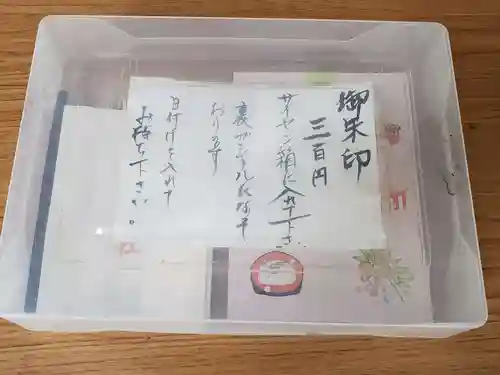 御朱印
三百円
サイセン箱に入れて下さい
裏が
おります
日付けを入れて
お持ち下さい。